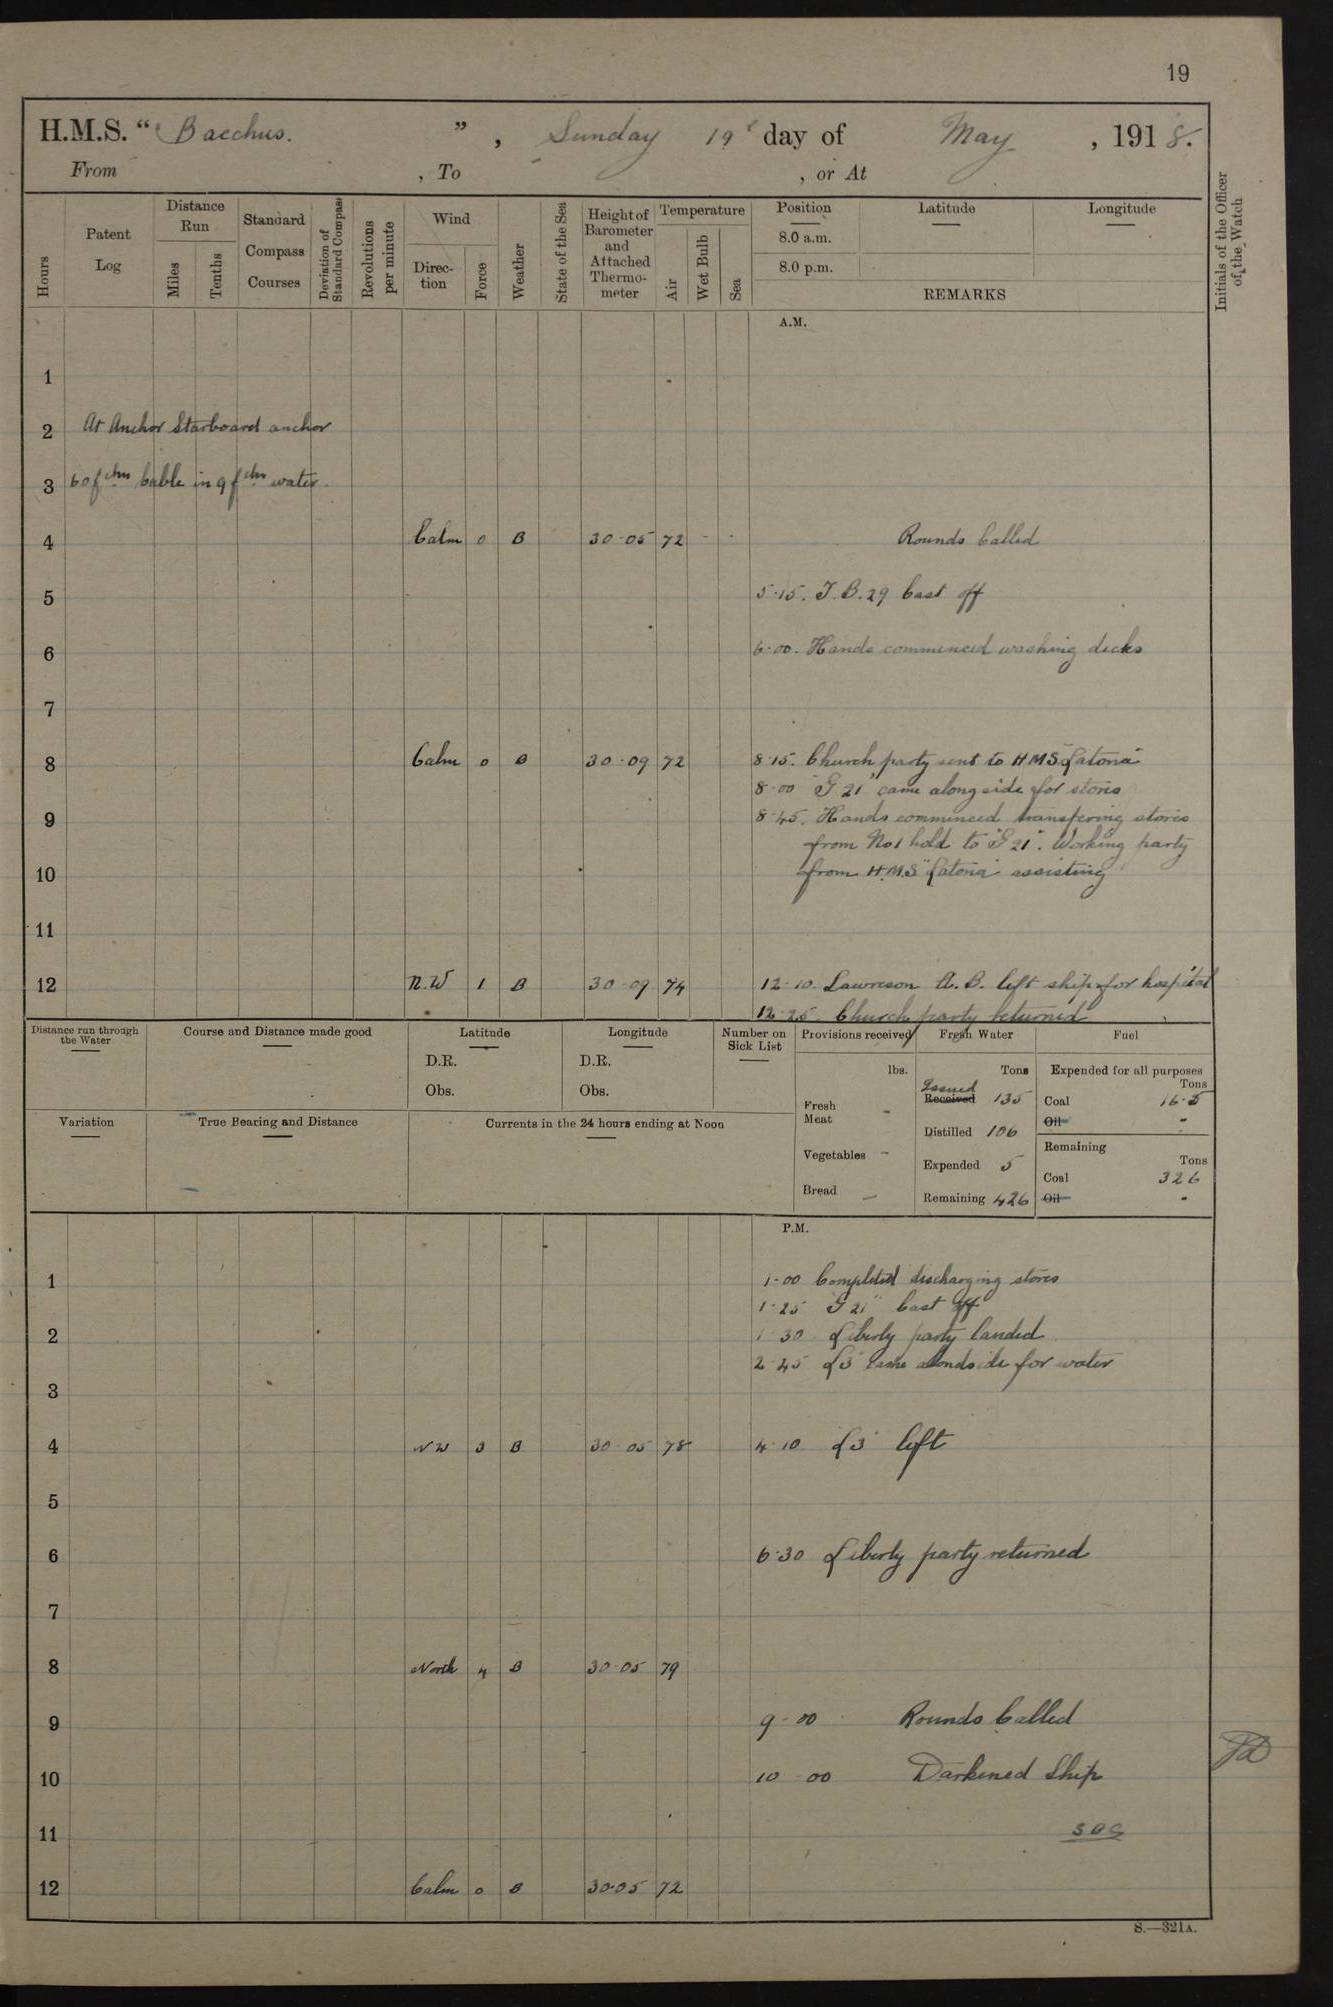 19
H.M.S. " Bacchus. ", Sunday 19th day of May, 1918.
From , To , or At
Hours
Patent Log
Distance Run
Miles
Tenths
Standard Compass Courses
Deviation of Standard Compass
Revolutions per minute
Wind
Direc-tion
Force
Weather
State of the Sea
Height of Barometer and Attached Thermo-meter
Temperature
Air
Wet Bulb
Sea
Position
8.0 a.m.
8.0 p.m.
Latitude
Longitude
REMARKS
Initials of the Officer of the Watch
A.M.
1
2 At Anchor Starboard anchor
3 60 fthm Cable in 9 fthm water.
4 Calm 0 B 30·05 72 - - Rounds Called
5 5·15. T.B. 29 Cast off
6 6·00. Hands commenced washing decks
7
8 Calm 0 B 30·09 72 8·15. Church party sent to HMS "Latona"
8·00 "G 21" came alongside for stores
9 8·45. Hands commenced transfering stores
from No 1 hold to "G 21". Working party
10 from H.M.S "Latona" assisting
11
12 N.W 1 B 30·09 74 12·10. Lawreson A.B. left ship for hospital
12·25. Church party returned
Distance run through the Water
Course and Distance made good
Latitude
D.R.
Obs.
Longitude
D.R.
Obs.
Number on Sick List
Provisions received
lbs.
Fresh Meat -
Vegetables -
Bread -
Fresh Water
Tons
Issued
Received 135
Distilled 106
Expended 5
Remaining 426
Fuel
Expended for all purposes
Tons
Coal 16·5
Oil -
Remaining
Tons
Coal 326
Oil -
Variation
True Bearing and Distance
Currents in the 24 hours ending at Noon
P.M.
1 1·00 Completed discharging stores
1·25 "G 21" Cast off
2 1·30 Liberty party landed
2·45 L3 came alondside for water
3
4 NW 3 B 30·05 78 4·10 L3 left
5
6 6·30 Liberty party returned
7
8 North 4 B 30·05 79
9 9·00 Rounds Called
10 10·00 Darkened Ship
11
12 Calm 0 B 30·05 72
S.—321A.